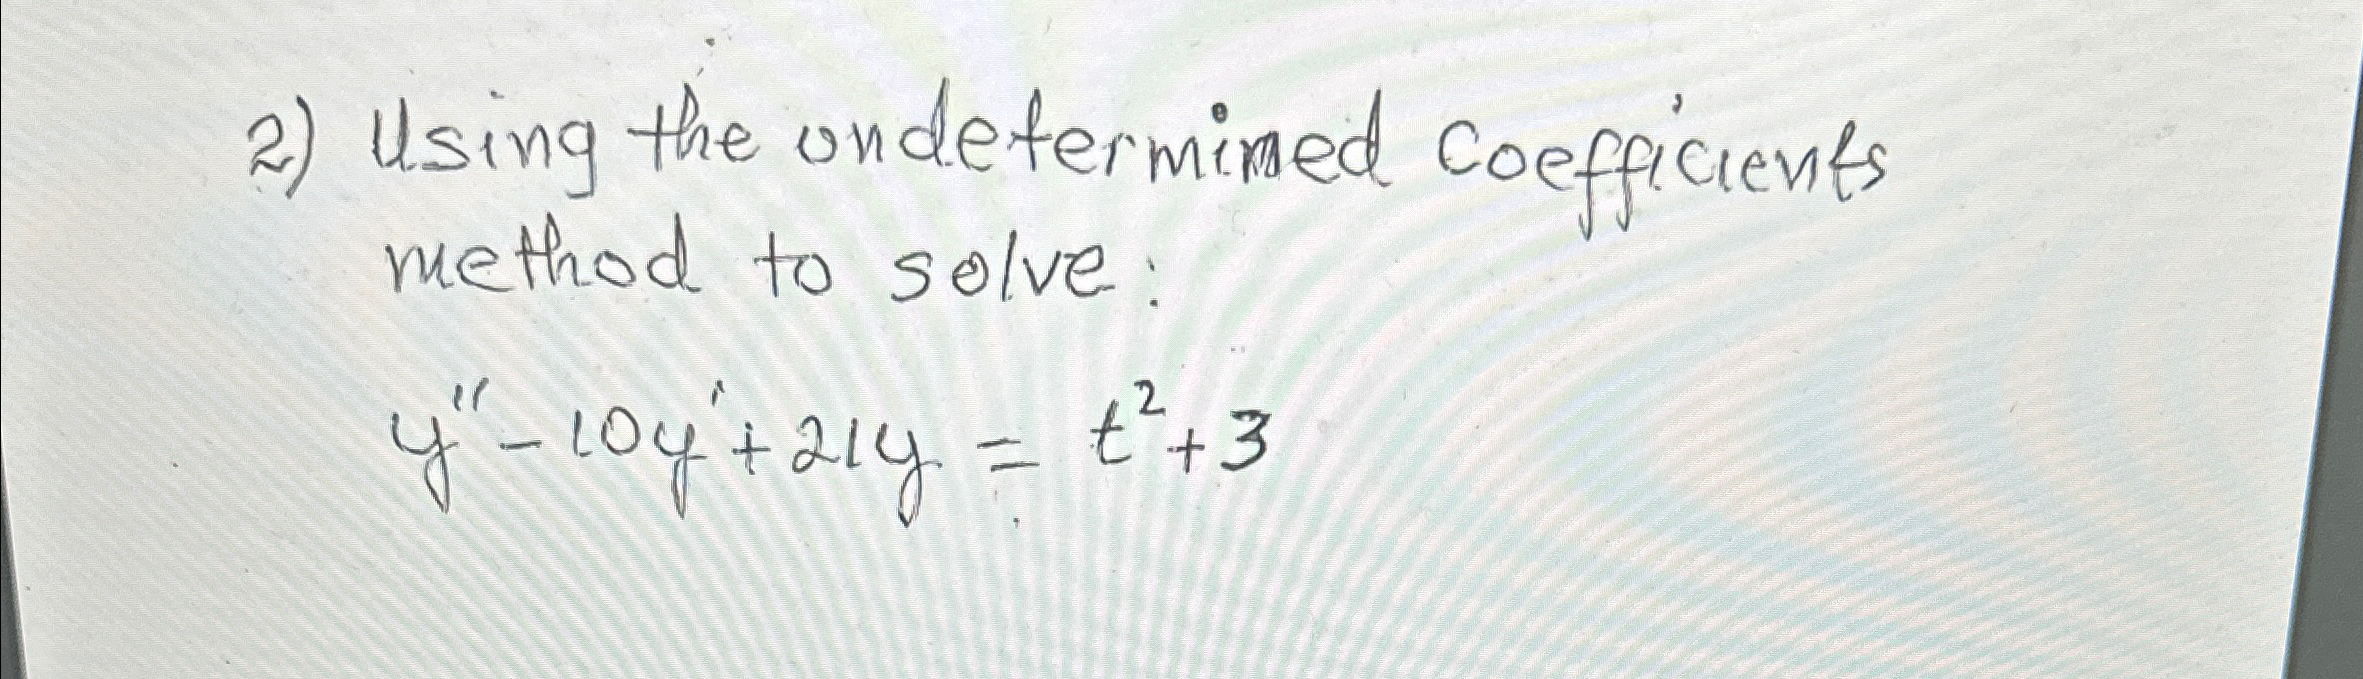 2) Using the undetermined coefficients
method to solve:
y'' - 10y' + 21y = t² + 3